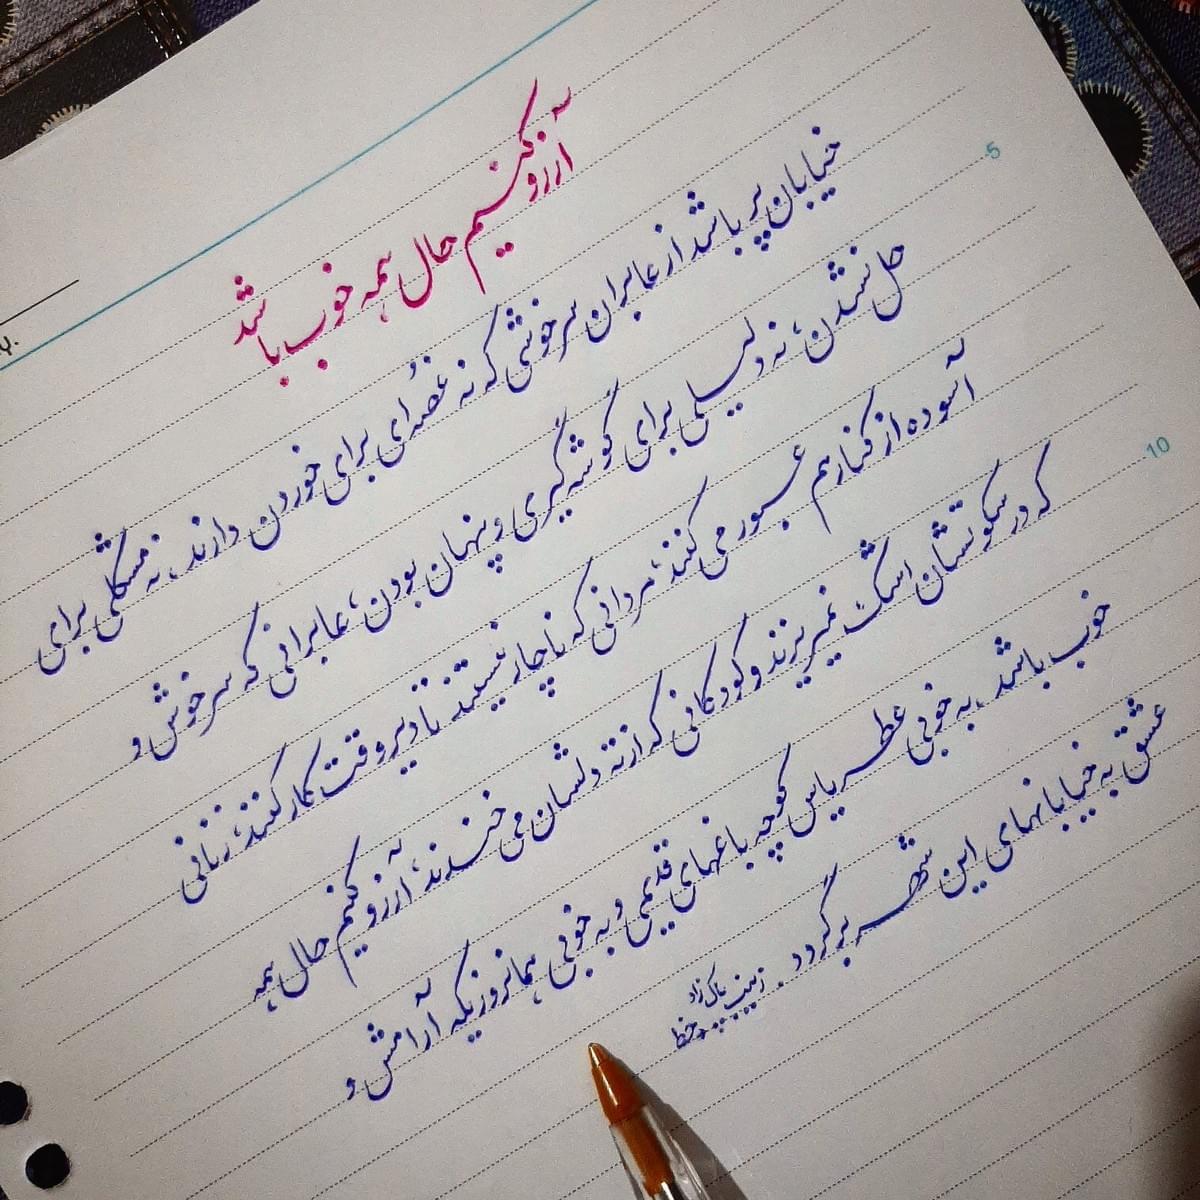 آرزو کنیم حال همه خوب باشد
خیابان پر باشد از عابران سرخوشی که نه غصه‌ای برای خوردن دارند، نه مشکلی برای
حل نشدن، نه دلیلی برای گوشه گیری و پنهان بودن، عابرانی که سرخوش و
آسوده از کنار هم عبور می کنند، مردانی که ناچار نیستند تا دیروقت کار کنند، زنانی
که در سکوتشان اشک نمیریزند و کودکانی که از ته دلشان می خندند، آرزو کنیم حال همه
خوب باشد. به خوبی عطر یاس کوچه باغهای قدیمی و به خوبی همانروزیکه آرامش و
عشق به خیابانهای این شهر برگردد.
زینب پاک زاد
5
10